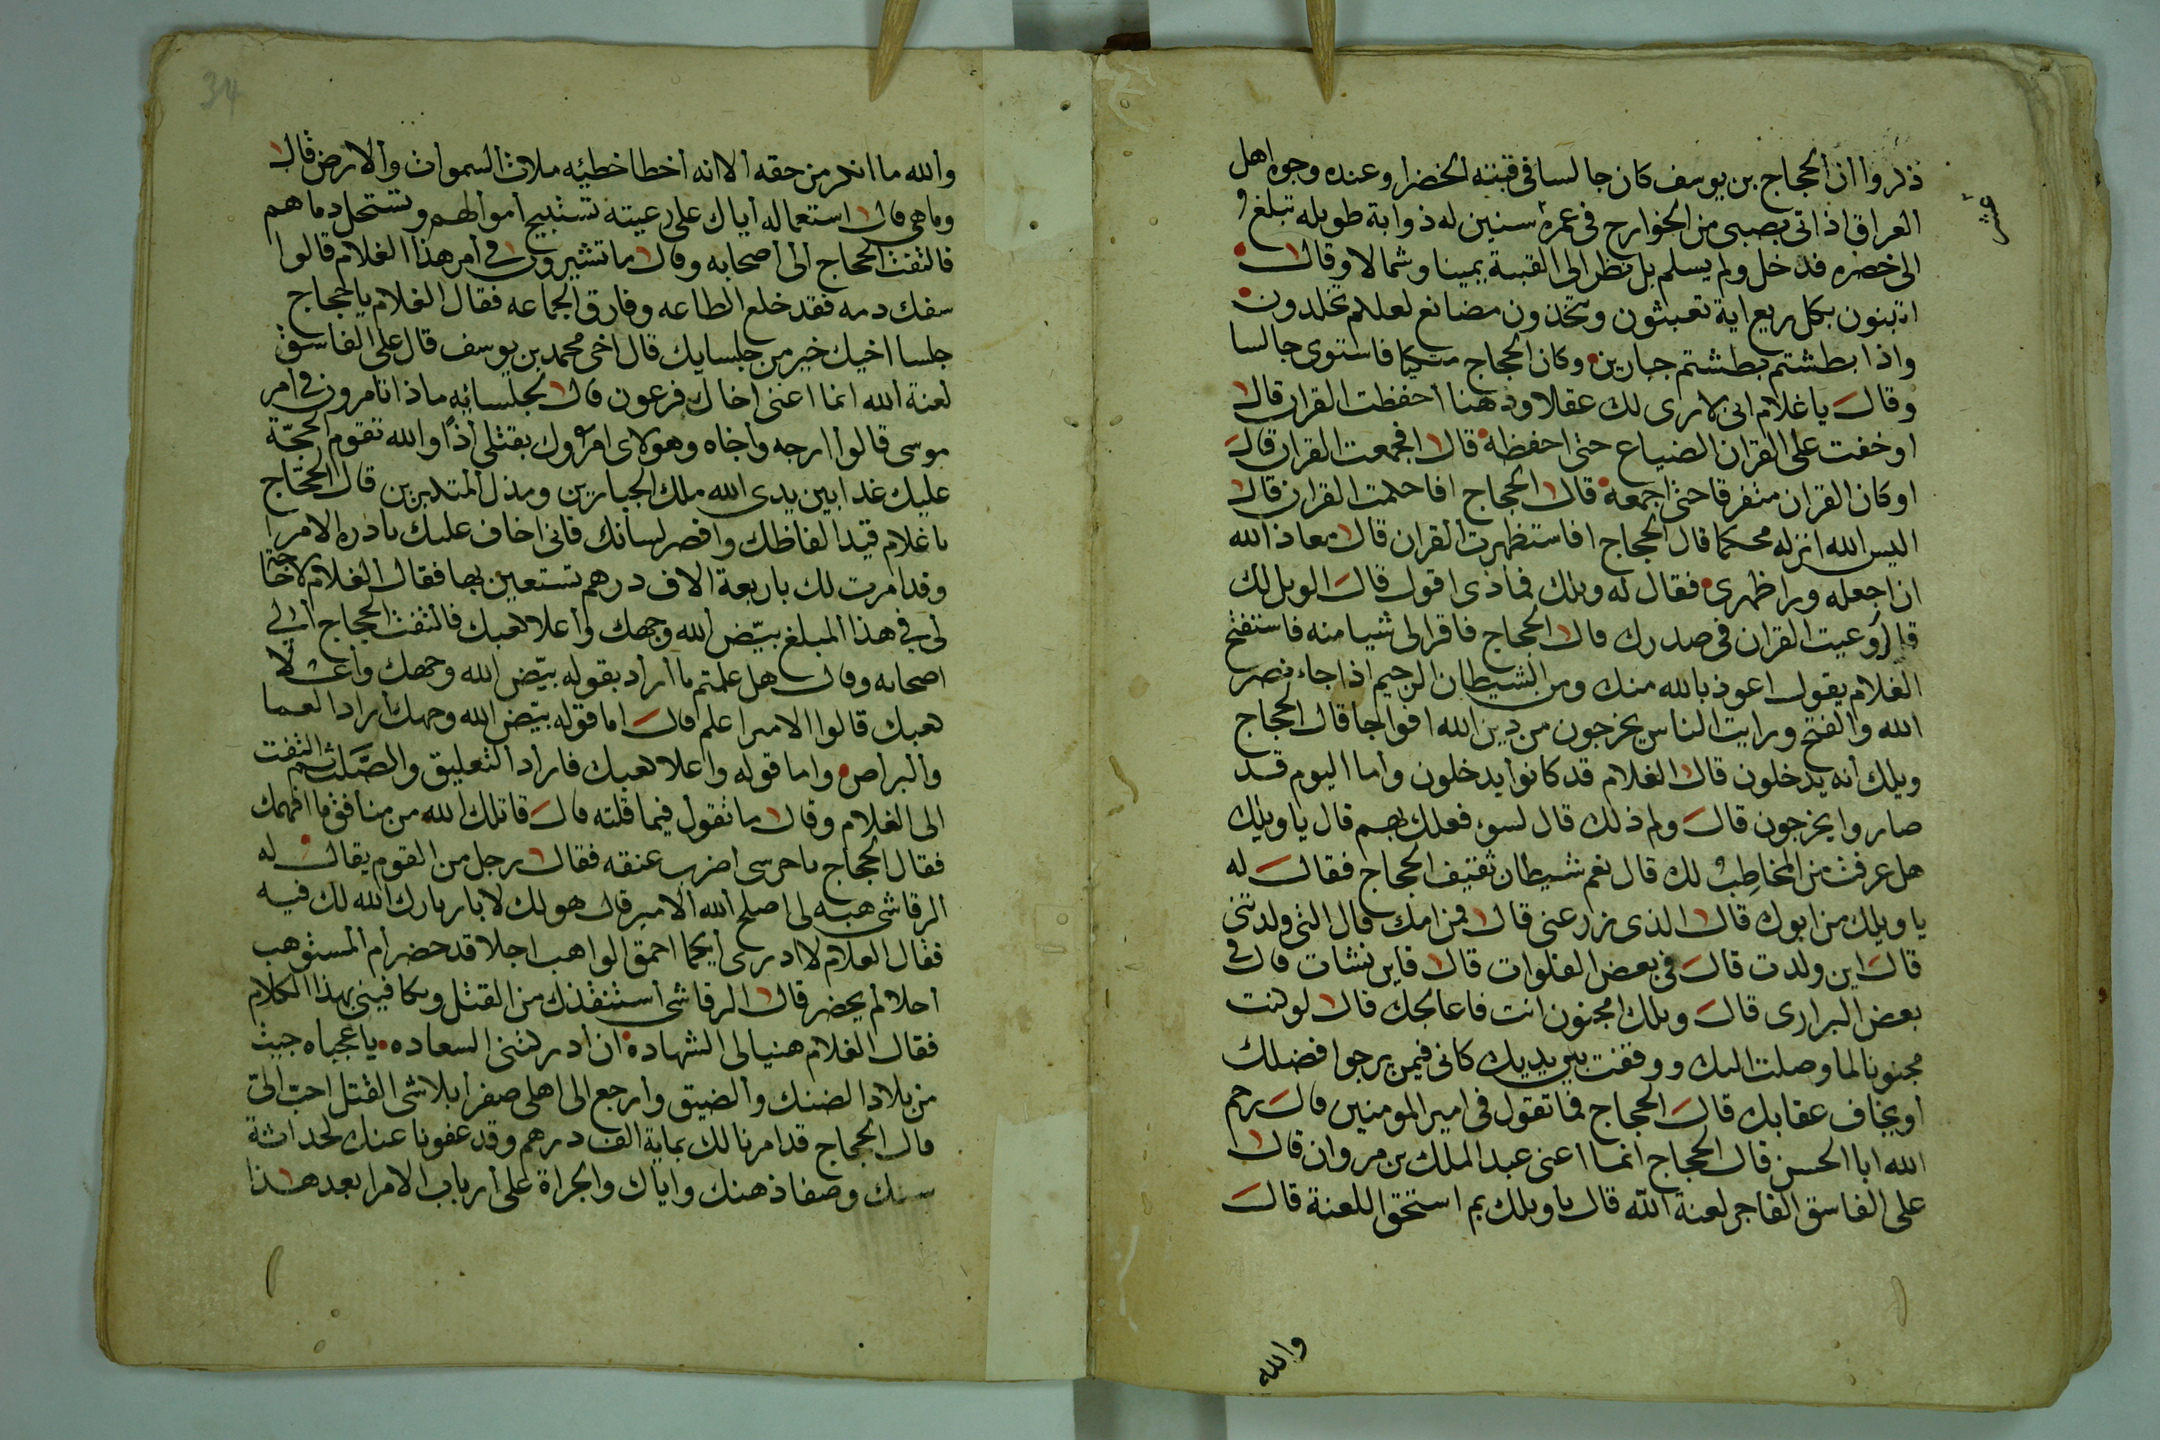 ذكروا أن الحجاج بن يوسف كان جالسا في قبته الخضرا وعنده وجوه اهل
العراق اذ اتى بصبى من الخوارج في عمره سنين له ذوابة طويله تبلغ
الى خصره فدخل ولم يسلم بل نظر الى القبة يمينا وشمالا وقال
اتبنون بكل ريع اية تعبثون وتتخذون مصانع لعلكم تخلدون
واذا بطشتم بطشتم جبارين وكان الحجاج متكيا فاستوى جالسا
وقال يا غلام اني لارى لك عقلا وذهنا أحفظت القران قال
اوخفت على القران الضياع حتى احفظه قال افجمعت القران قال
اوكان القران متفرقا حتى اجمعه قال الحجاج افاحكمت القران قال
اليس الله انزله محكما قال الحجاج افاستظهرت القران قال معاذ الله
ان اجعله ورا ظهرى فقال له ويلك فماذى اقول قال الويل لك
قل أوعيت القران في صدرك قال الحجاج فاقرا لى شيا منه فاستفتح
الغلام يقول اعوذ بالله منك ومن الشيطان الرجيم اذا جاء نصر
الله والفتح ورايت الناس يخرجون من دين الله افواجا قال الحجاج
ويلك أنه يدخلون قال الغلام قد كانوا يدخلون وأما اليوم قد
صاروا يخرجون قال ولم ذلك قال لسوء فعلك بهم قال يا ويلك
هل عرفت من المخاطب لك قال نعم شيطان ثقيف الحجاج فقال له
يا ويلك من ابوك قال الذى زرعنى قال فمن امك قال التى ولدتنى
قال اين ولدت قال في بعض الفلوات قال فاين نشات قال في
بعض البرارى قال ويلك امجنون انت فاعالجك قال لو كنت
مجنونا لما وصلت اليك ووقفت بين يديك كانى فيمن يرجوا فضلك
او يخاف عقابك قال الحجاج فما تقول في امير المومنين قال رحم
الله ابا الحسن قال الحجاج انما أعنى عبد الملك بن مروان قال
على الفاسق الفاجر لعنة الله قال يا ويلك بم استحق اللعنة قال
والله
والله ما انكر من حقه ألا انه أخطا خطيئه ملات السموات والارض قال
وما هي قال استعماله أياك على رعيته تستبيح أموالهم وتستحل دماهم
فالتفت الحجاج الى أصحابه وقال ما تشيرون في أمر هذا الغلام قالوا
سفك دمه فقد خلع الطاعه وفارق الجماعه فقال الغلام يا حجاج
جلسا اخيك خير من جلسايك قال اخى محمد بن يوسف قال على الفاسق
لعنة الله انما اعنى اخاك فرعون قال لجلسائه ماذا تامرون في امر
موسى قالوا ارجه وأخاه وهولاى امروك بقتلى أذًا والله تقوم الحجّة
عليك غدا بين يدى الله ملك الجبارين ومذل المتكبرين قال الحجاج
يا غلام قيد الفاظك واقصر لسانك فانى اخاف عليك بادره الامر
وقد امرت لك باربعة الاف درهم تستعين بها فقال الغلام لا حاجة
لى في هذا المبلغ بيّض الله وجهك وأعلا كعبك فالتفت الحجاج ألى
اصحابه وقال هل علمتم ما أراد بقوله بيّض الله وجهك وأعلا
كعبك قالوا الامير اعلم قال اما قوله بيّض الله وجهك أراد العما
والبراص واما قوله واعلا كعبك فاراد التعليق والصّلب ثم التفت
الى الغلام وقال ما تقول فيما قلته قال قاتلك الله من منافق ما افهمك
فقال الحجاج يا حرسى اضرب عنقه فقال رجل من القوم يقال له
الرقاشى هبه لى اصلح الله الامير قال هو لك لا بارك الله لك فيه
فقال الغلام لا ادرى أيكما احمق الواهب اجلا قد حضر أم المستوهب
أجلا لم يحضر قال الرقاشى أستنقذك من القتل وتكافينى بهذا الكلام
فقال الغلام هنيا لى الشهادة ان ادركتنى السعاده يا عجباه جيت
من بلاد الضنك والضيق وأرجع الى اهلى صفرا بلاشى القتل احبّ الىّ
قال الحجاج قد امرنا لك بماية الف درهم وقد عفونا عنك لحداثة
سنك وصفا ذهنك واياك والجراة على أرباب الامر بعد هذا